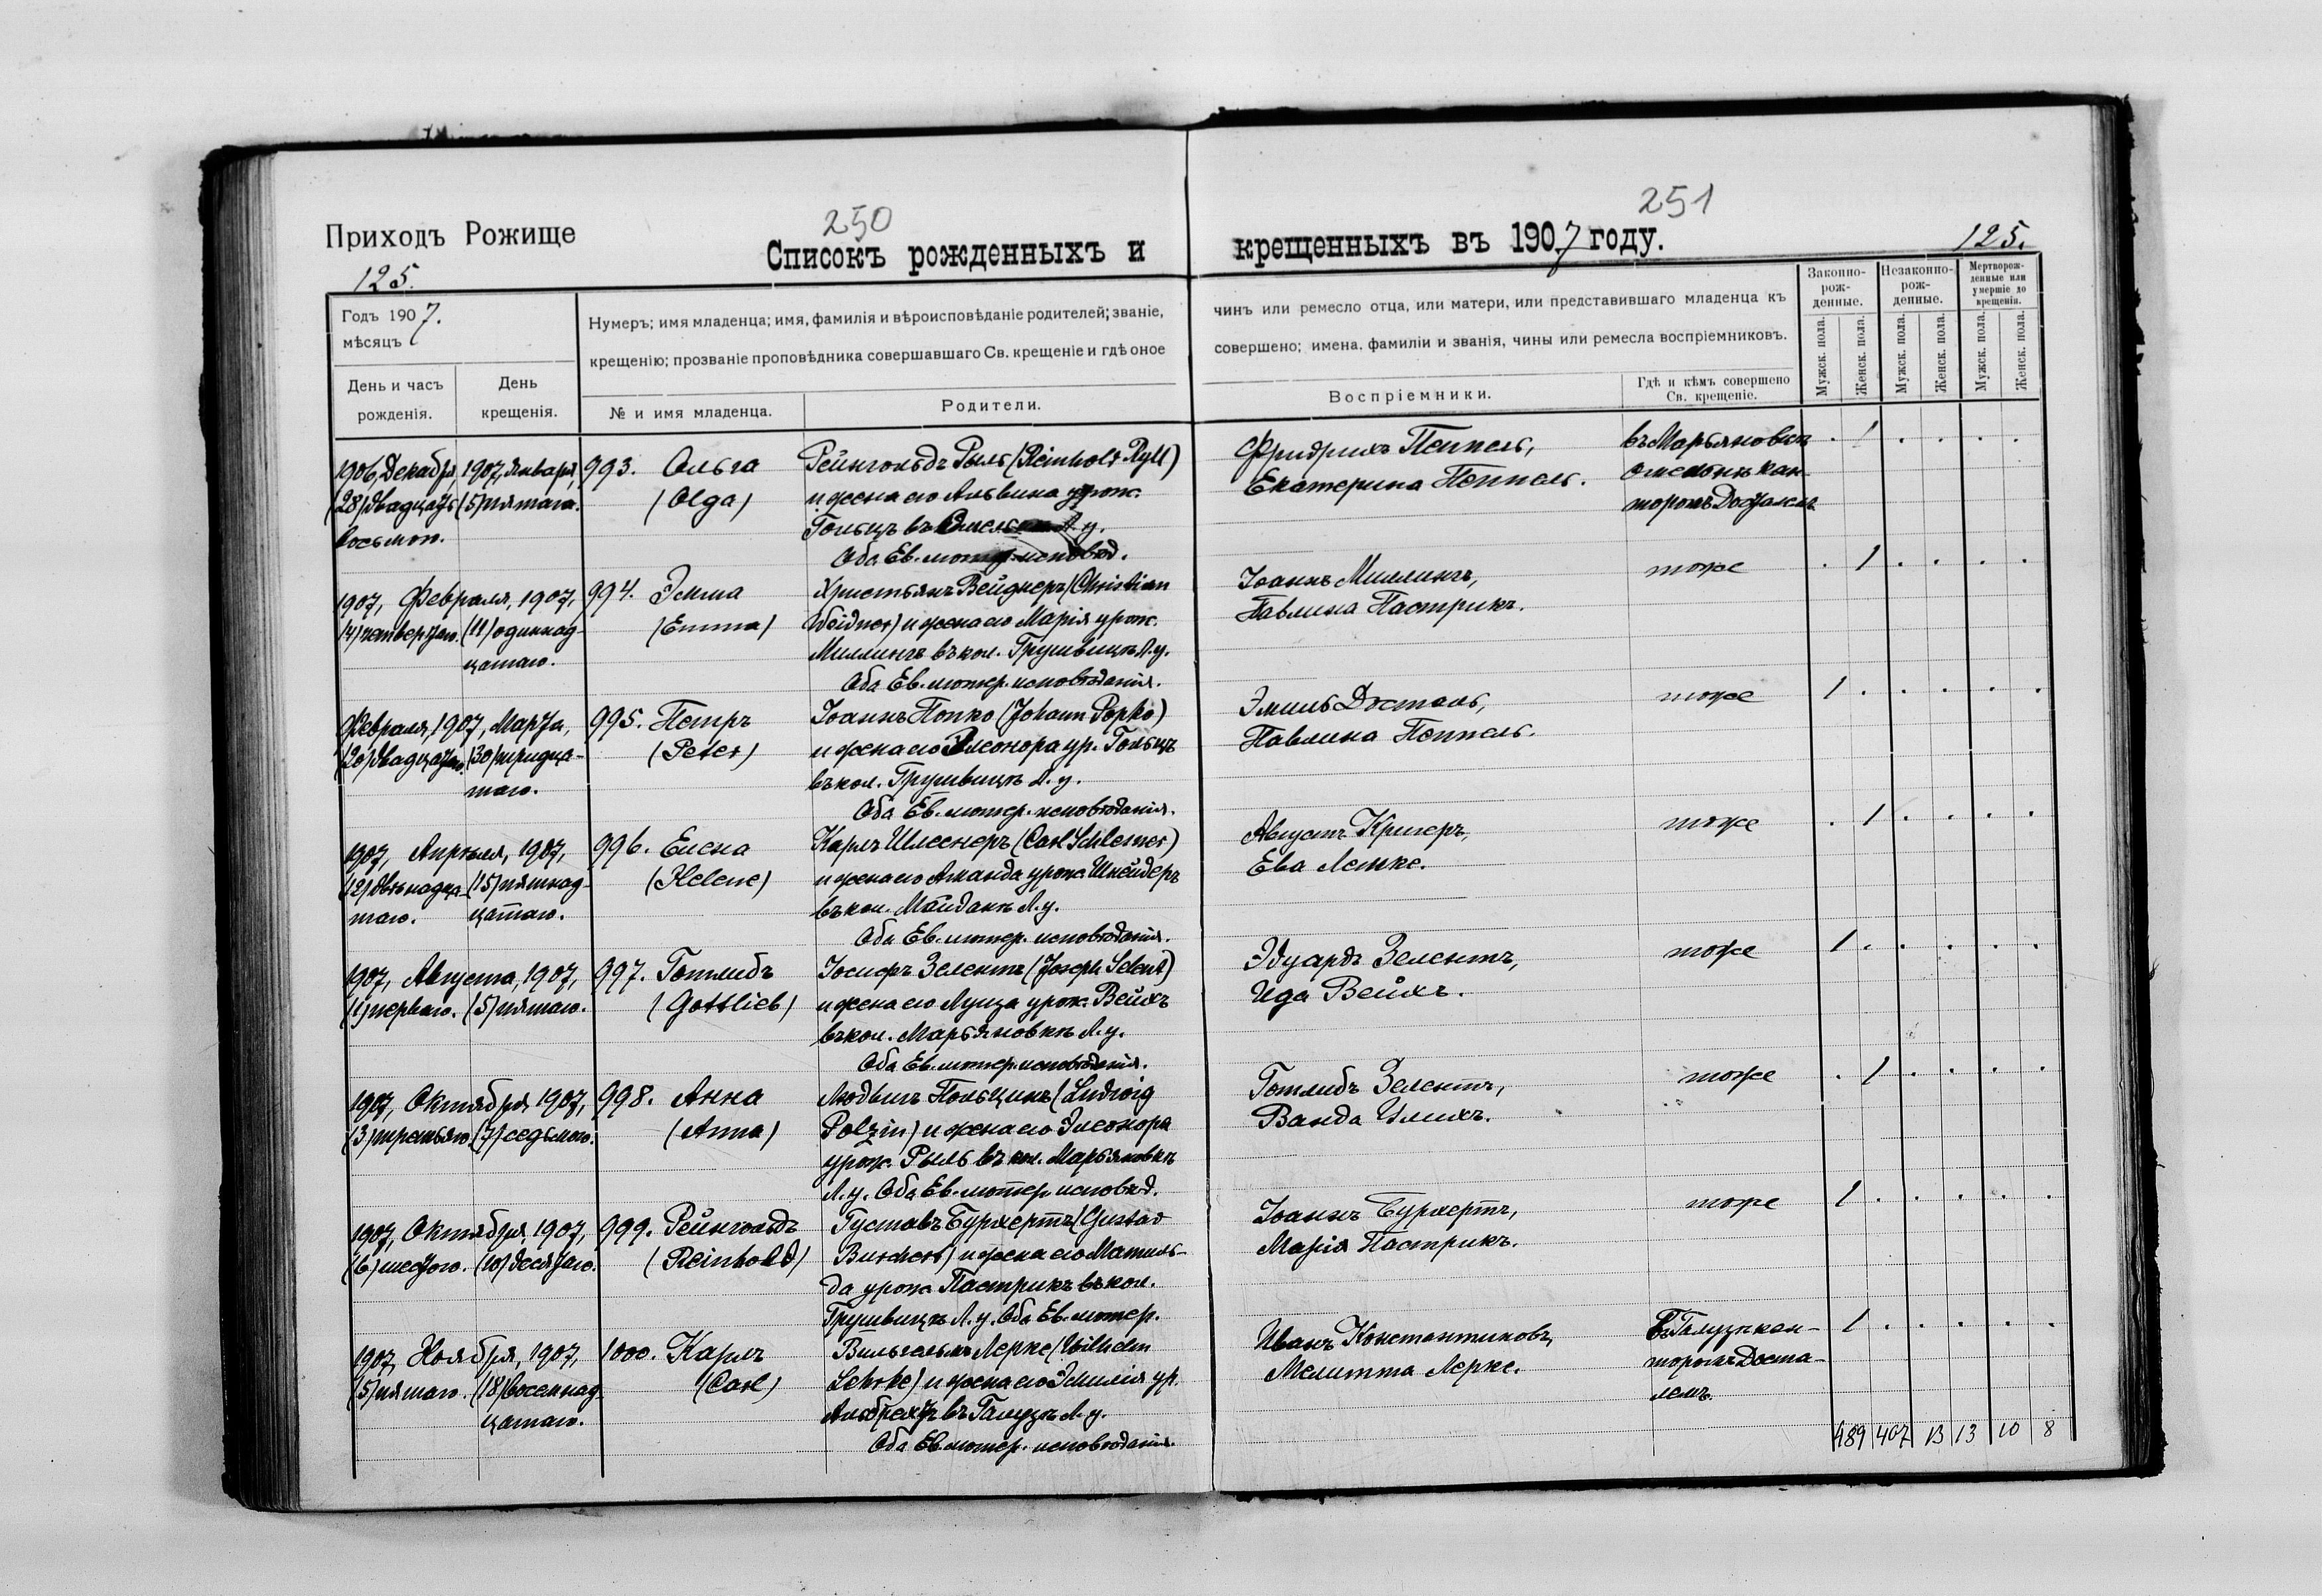 250
251
Приходъ Рожище
Списокъ рожденныхъ и
крещенныхъ въ 1907 году.
125.
125.
Годъ 1907.
мѣсяцъ
День и часъ
рожденія.
День
крещенія.
Нумеръ; имя младенца; имя, фамилія и вѣроисповѣданіе родителей; званіе,
крещенію; прозваніе проповѣдника совершавшаго Св. крещеніе и гдѣ оное
№ и имя младенца.
Родители.
чинъ или ремесло отца, или матери, или представившаго младенца къ
совершено; имена, фамиліи и званія, чины или ремесла воспріемниковъ.
Воспріемники.
Гдѣ и кѣмъ совершено
Св. крещеніе.
Законно-
рож-
денные.
Незаконно-
рож-
денные.
Мертворож-
денные или
умершіе до
крещенія.
Мужск. пола.
Женск. пола.
Мужск. пола.
Женск. пола.
Мужск. пола.
Женск. пола.
1906, Декабря, 1907, Января,
(28) двадцать (5) пятаго.
восьмого.
993. Ольга
(Olga)
Рейнгольдъ Рыль (Reinhold Ryll)
и жена его Альвина урож.
Гольцъ въ Л. у.
Оба Ев. лютер. исповѣд.
Фридрихъ Пеппель,
Екатерина Пеппель.
въ Марьяновкѣ
кан-
торомъ Досталемъ
1
1907, Февраля, 1907,
(4) четвертаго. (11) одиннад-
цатаго.
994. Эмма
(Emma)
Христьянъ Вейднеръ (Christian
Weidner) и жена его Марія урож.
Миллингъ въ кол. Грушвицѣ Л. у.
Оба Ев. лютер. исповѣданія.
Іоаннъ Миллингъ,
Павлина Пастрикъ.
тоже
1
Февраля, 1907, Марта,
(20) двадцатаго. (30) тридца-
таго.
995. Петръ
(Peter)
Іоаннъ Попко (Johann Popko)
и жена его Элеонора ур. Гольцъ
въ кол. Грушвицѣ Л. у.
Оба Ев. лютер. исповѣданія.
Эмиль Досталь,
Павлина Пеппель.
тоже
1
1907, Апрѣля, 1907,
(12) двѣнадца- (15) пятнад-
таго. цатаго.
996. Елена
(Helene)
Карлъ Шлеснеръ (Carl Schlesner)
и жена его Аманда урож. Шнейдеръ
въ кол. Майданѣ Л. у.
Оба Ев. лютер. исповѣданія.
Августъ Кригеръ,
Ева Лемке.
тоже
1
1907, Августа, 1907,
(1) перваго. (5) пятаго.
997. Готлибъ
(Gottlieb)
Іосифъ Зелентъ (Joseph Selent)
и жена его Луиза урож. Вейхъ
въ кол. Марьяновкѣ Л. у.
Оба Ев. лютер. исповѣданія.
Эдуардъ Зелентъ,
Ида Вейхъ.
тоже
1
1907, Октября, 1907,
(3) третьяго. (7) седьмого.
998. Анна
(Anna)
Людвигъ Польцинъ (Ludwig
Polzin) и жена его Элеонора
урож. Рыль въ кол. Марьяновкѣ
Л. у. Оба Ев. лютер. исповѣд.
Готлибъ Зелентъ,
Ванда
тоже
1
1907, Октября, 1907,
(6) шестого. (10) десятаго.
999. Рейнгольдъ
(Reinhold)
Густавъ Бурхертъ (Gustav
Burchert) и жена его Матиль-
да урож. Пастрикъ въ кол.
Грушвицѣ Л. у. Оба Ев. лютер.
Іоаннъ Бурхертъ,
Марія Пастрикъ.
тоже
1
1907, Ноября, 1907,
(5) пятаго. (18) восемнад-
цатаго.
1000. Карлъ
(Carl)
Вильгельмъ Лерке (Wilhelm
Lehrke) и жена его Эмилія ур.
Альбрехтъ въ Галузѣ Л. у.
Оба Ев. лютер. исповѣданія.
Иванъ Константиновъ,
Мелитта Лерке.
въ Галузѣ кан-
торомъ Доста-
лемъ.
1
489 407 13 13 10 8